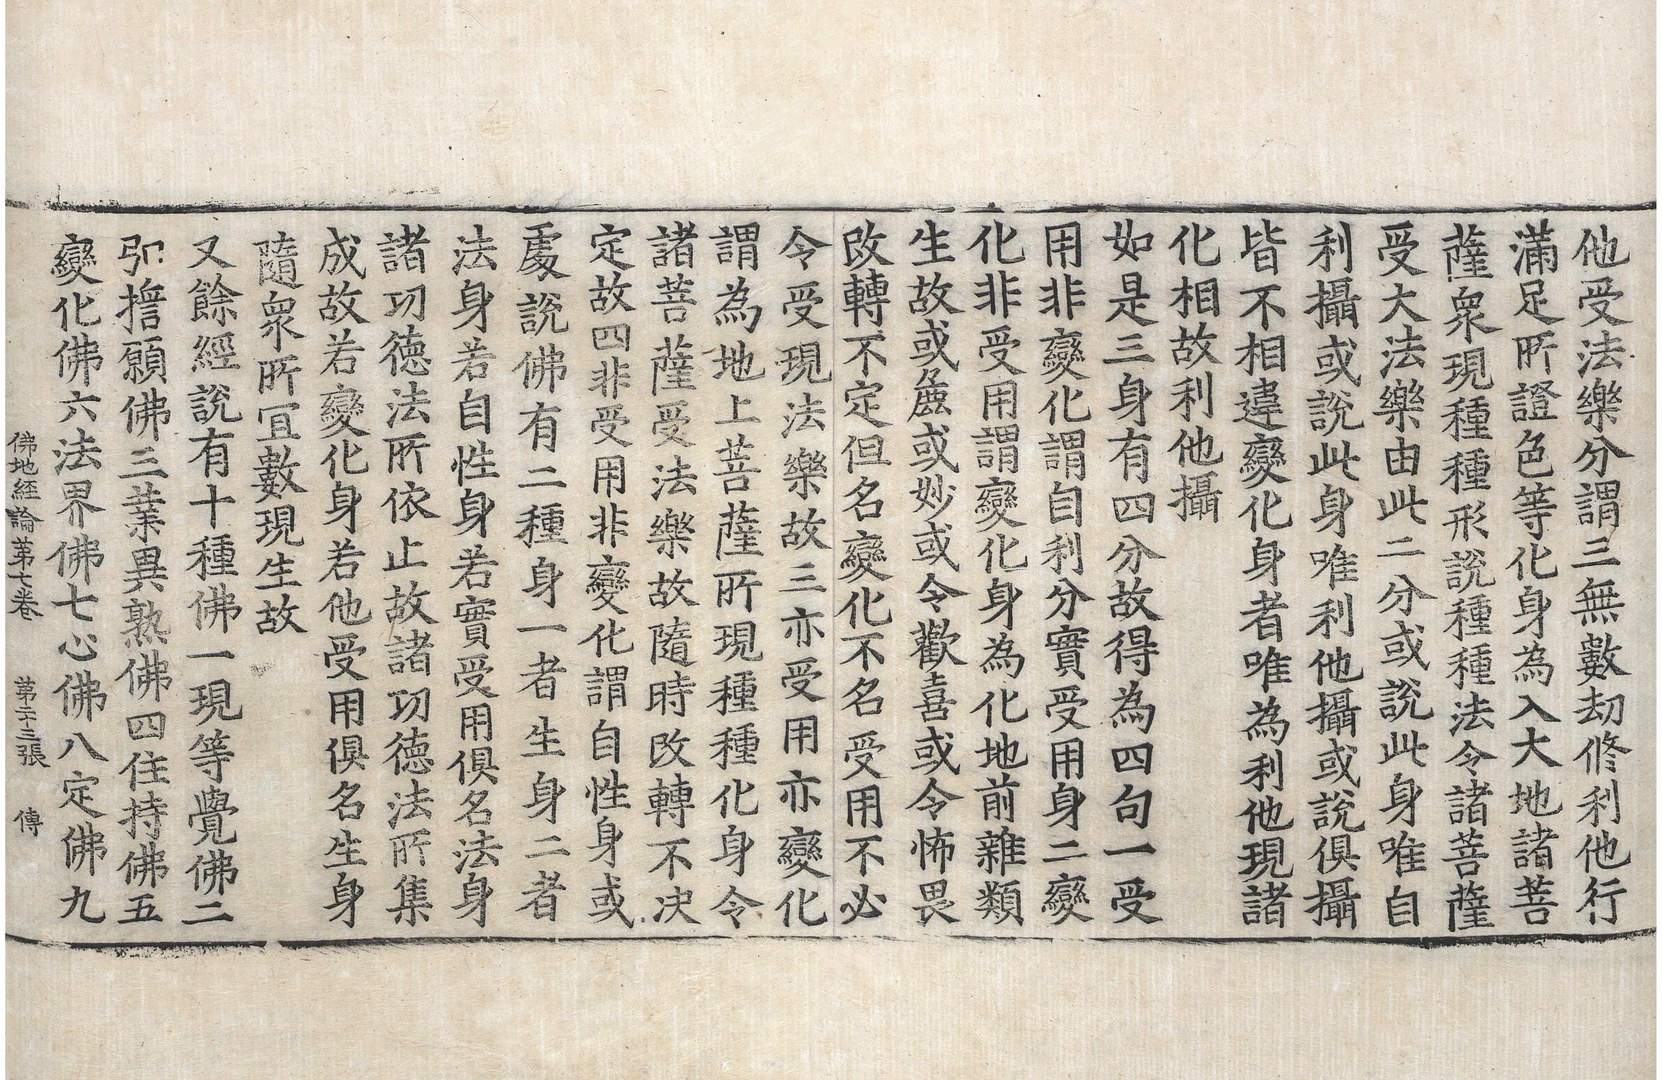 他受法樂分謂三無數劫修利他行
滿足所證色等化身為入大地諸菩
薩衆現種種形說種種法令諸菩薩
受大法樂由此二分或說此身唯自
利攝或說此身唯利他攝或說俱攝
皆不相違變化身者唯為利他現諸
化相故利他攝
如是三身有四分故得為四句一受
用非變化謂自利分實受用身二變
化非受用謂變化身為化地前雜類
生故或麁或妙或令歡喜或令怖畏
改轉不定但名變化不名受用不必
令受現法樂故三亦受用亦變化
謂為地上菩薩所現種種化身令
諸菩薩受法樂故隨時改轉不决
定故四非受用非變化謂自性身或
處說佛有二種身一者生身二者
法身若自性身若實受用俱名法身
諸功德法所依止故諸功德法所集
成故若變化身若他受用俱名生身
隨衆所宜數現生故
又餘經說有十種佛一現等覺佛二
弘擔願佛三業異熟佛四住持佛五
變化佛六法界佛七心佛八定佛九
佛地經論第七卷 第二十三張 傳